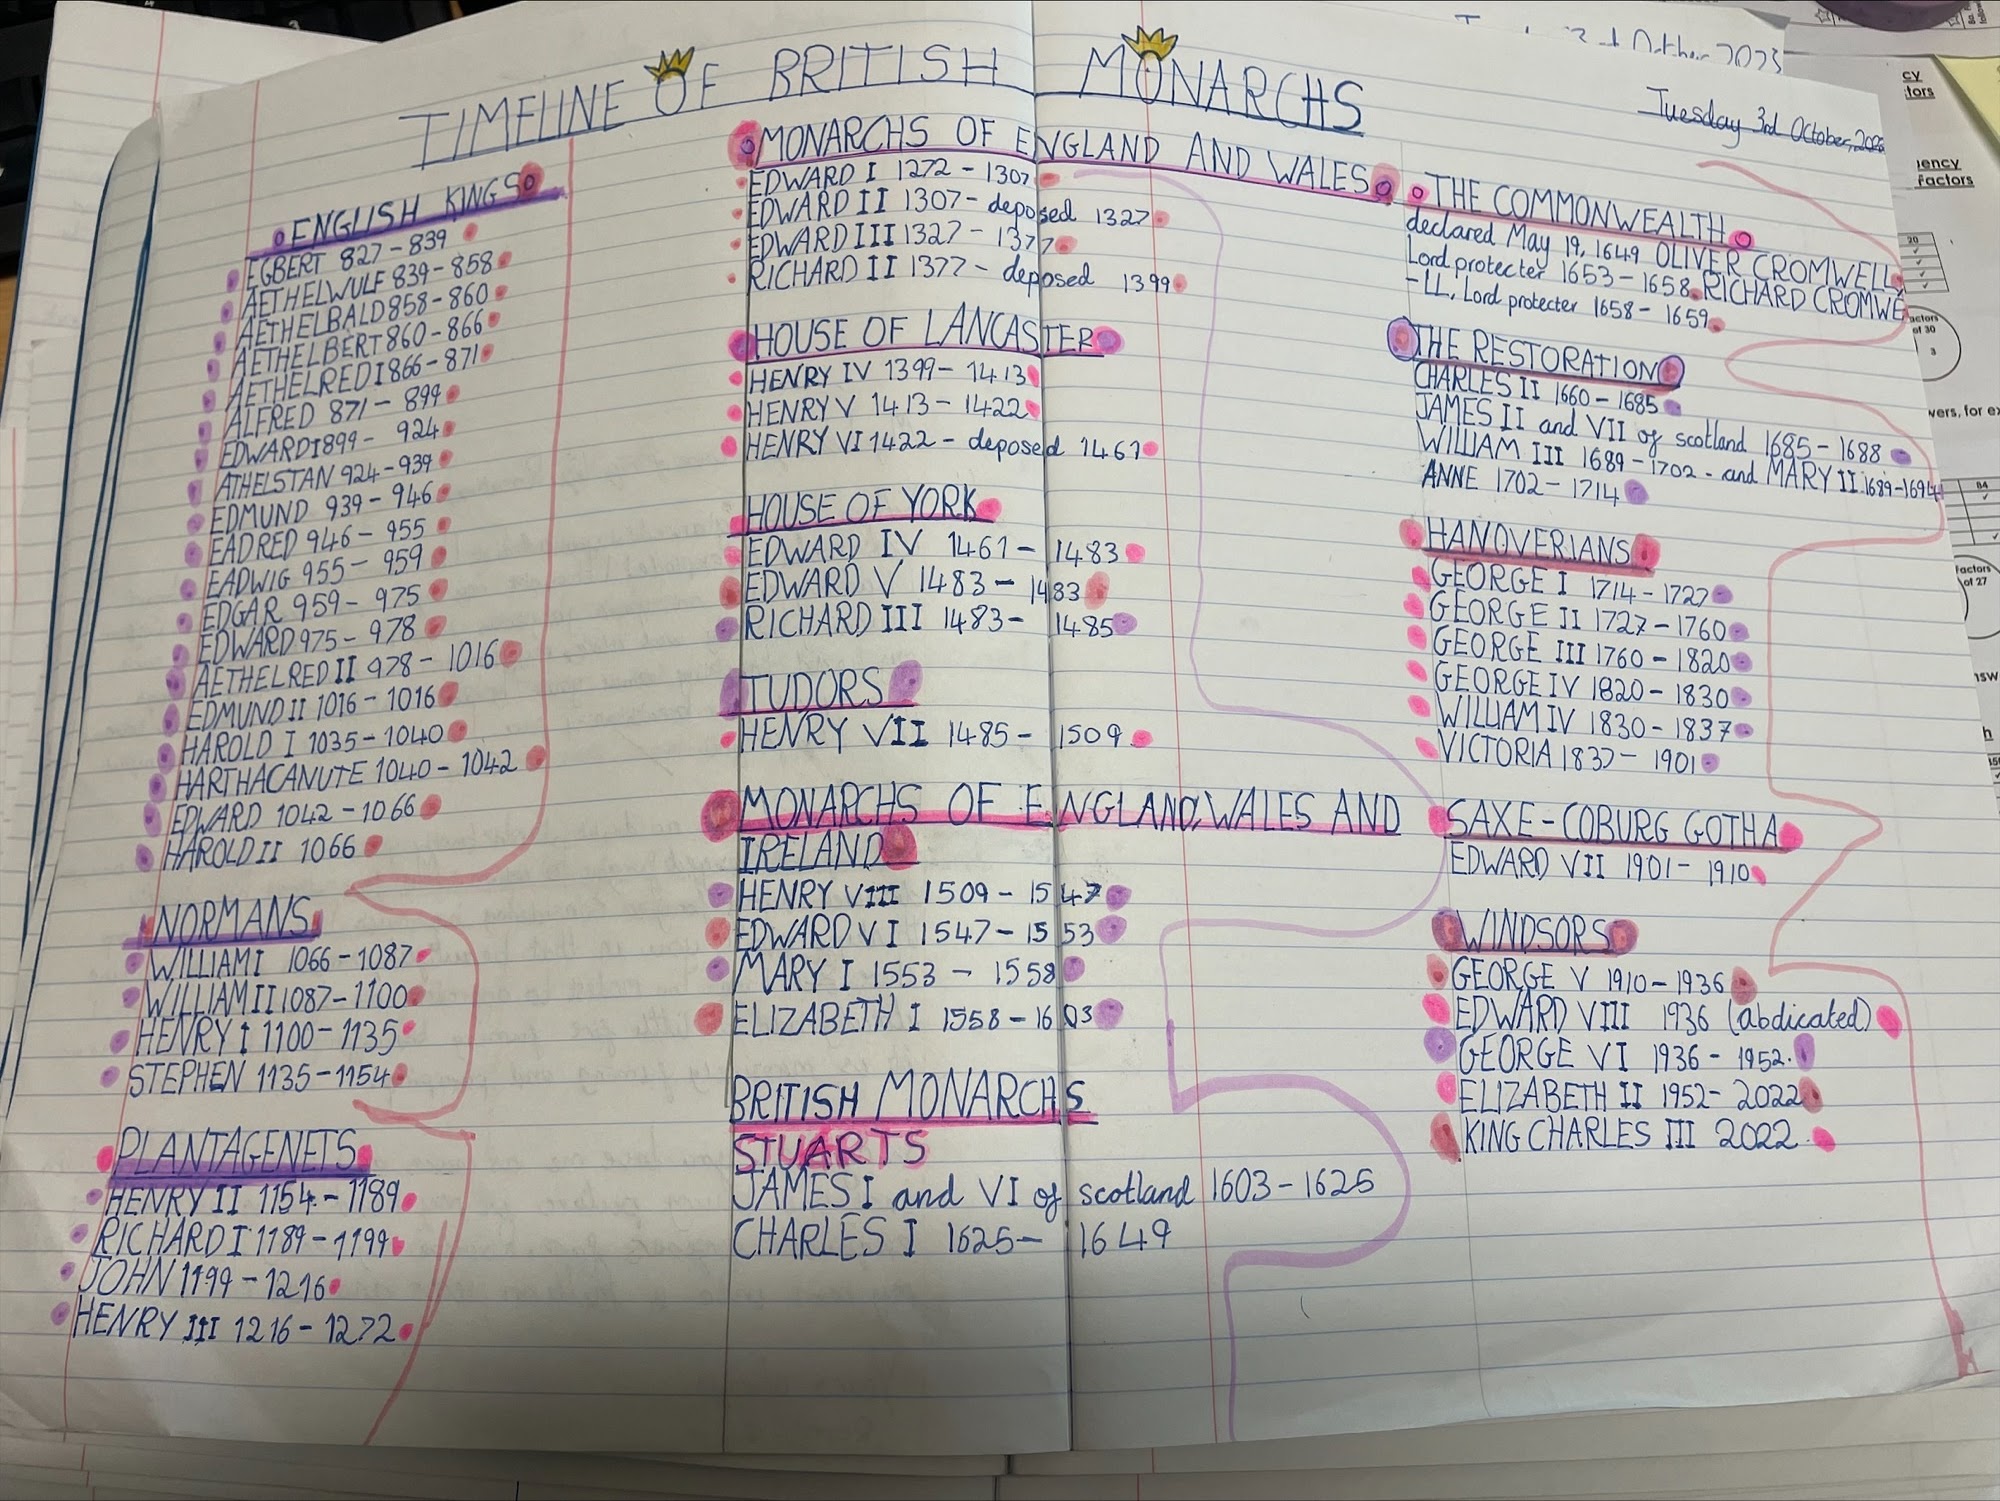 TIMELINE OF BRITISH MONARCHS
Tuesday 3rd October, 2023
ENGLISH KINGS
EGBERT 827-839
AETHELWULF 839-858
AETHELBALD 858-860
AETHELBERT 860-866
AETHELRED I 866-871
ALFRED 871-899
EDWARD I 899-924
ATHELSTAN 924-939
EDMUND 939-946
EADRED 946-955
EADWIG 955-959
EDGAR 959-975
EDWARD 975-978
AETHELRED II 978-1016
EDMUND II 1016-1016
HAROLD I 1035-1040
HARTHACANUTE 1040-1042
EDWARD 1042-1066
HAROLD II 1066
NORMANS
WILLIAM I 1066-1087
WILLIAM II 1087-1100
HENRY I 1100-1135
STEPHEN 1135-1154
PLANTAGENETS
HENRY II 1154-1189
RICHARD I 1189-1199
JOHN 1199-1216
HENRY III 1216-1272
MONARCHS OF ENGLAND AND WALES
EDWARD I 1272-1307
EDWARD II 1307-deposed 1327
EDWARD III 1327-1377
RICHARD II 1377-deposed 1399
HOUSE OF LANCASTER
HENRY IV 1399-1413
HENRY V 1413-1422
HENRY VI 1422-deposed 1461
HOUSE OF YORK
EDWARD IV 1461-1483
EDWARD V 1483-1483
RICHARD III 1483-1485
TUDORS
HENRY VII 1485-1509
MONARCHS OF ENGLAND, WALES AND
IRELAND
HENRY VIII 1509-1547
EDWARD VI 1547-1553
MARY I 1553-1558
ELIZABETH I 1558-1603
BRITISH MONARCHS
STUARTS
JAMES I and VI of scotland 1603-1625
CHARLES I 1625-1649
THE COMMONWEALTH
declared May 19, 1649 OLIVER CROMWELL,
Lord protecter 1653-1658. RICHARD CROMWE
-LL, Lord protecter 1658-1659
THE RESTORATION
CHARLES II 1660-1685
JAMES II and VII of scotland 1685-1688
WILLIAM III 1689-1702-and MARY II 1689-1694
ANNE 1702-1714
HANOVERIANS
GEORGE I 1714-1727
GEORGE II 1727-1760
GEORGE III 1760-1820
GEORGE IV 1820-1830
WILLIAM IV 1830-1837
VICTORIA 1837-1901
SAXE-COBURG GOTHA
EDWARD VII 1901-1910
WINDSORS
GEORGE V 1910-1936
EDWARD VIII 1936 (abdicated)
GEORGE VI 1936-1952.
ELIZABETH II 1952-2022
KING CHARLES III 2022.